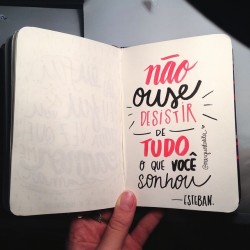 não
ouse
DESISTIR
DE
TUDO
O QUE VOCÊ
sonhou
—ESTEBAN.